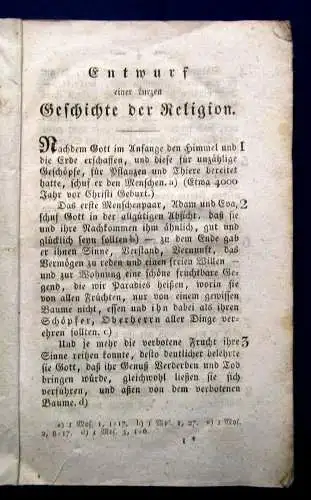 Entwurf
einer kurzen
Geschichte der Religion.
Nachdem Gott im Anfange den Himmel und 1
die Erde erschaffen, und diese für unzählige
Geschöpfe, für Pflanzen und Thiere bereitet
hatte, schuf er den Menschen. a) (Etwa 4000
Jahr vor Christi Geburt.)
Das erste Menschenpaar, Adam und Eva, 2
schuf Gott in der allgütigen Absicht, daß sie
und ihre Nachkommen ihm ähnlich, gut und
glücklich seyn sollten b) — zu dem Ende gab
er ihnen Sinne, Verstand, Vernunft, das
Vermögen zu reden und einen freien Willen —
und zur Wohnung eine schöne fruchtbare Ge-
gend, die wir Paradies heißen, worin sie
von allen Früchten, nur von einem gewissen
Baume nicht, essen und ihn dabei als ihren
Schöpfer, Oberherrn aller Dinge ver-
ehren sollten. c)
Und je mehr die verbotene Frucht ihre 3
Sinne reizen konnte, desto deutlicher belehrte
sie Gott, daß ihr Genuß Verderben und Tod
bringen würde, gleichwohl ließen sie sich
verführen, und aßen von dem verbotenen
Baume. d)
a) 1 Mos. 1, 1-17. b) 1 Mos. 1, 27. c) 1 Mos.
2, 8-17. d) 1 Mos. 3, 1-6.
1 *